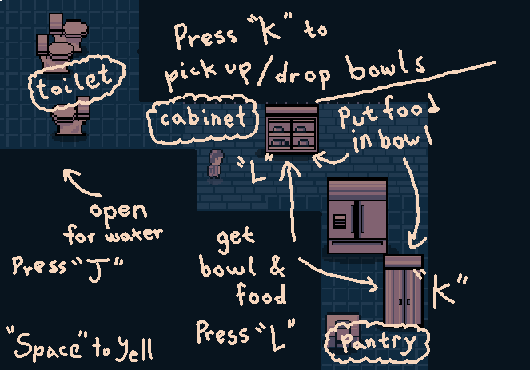 Press "K" to
pick up/drop bowls
toilet
cabinet
Put food
in bowl
"L"
open
for water
Press "J"
get
bowl &
food
Press "L"
"K"
"Space" to Yell
pantry